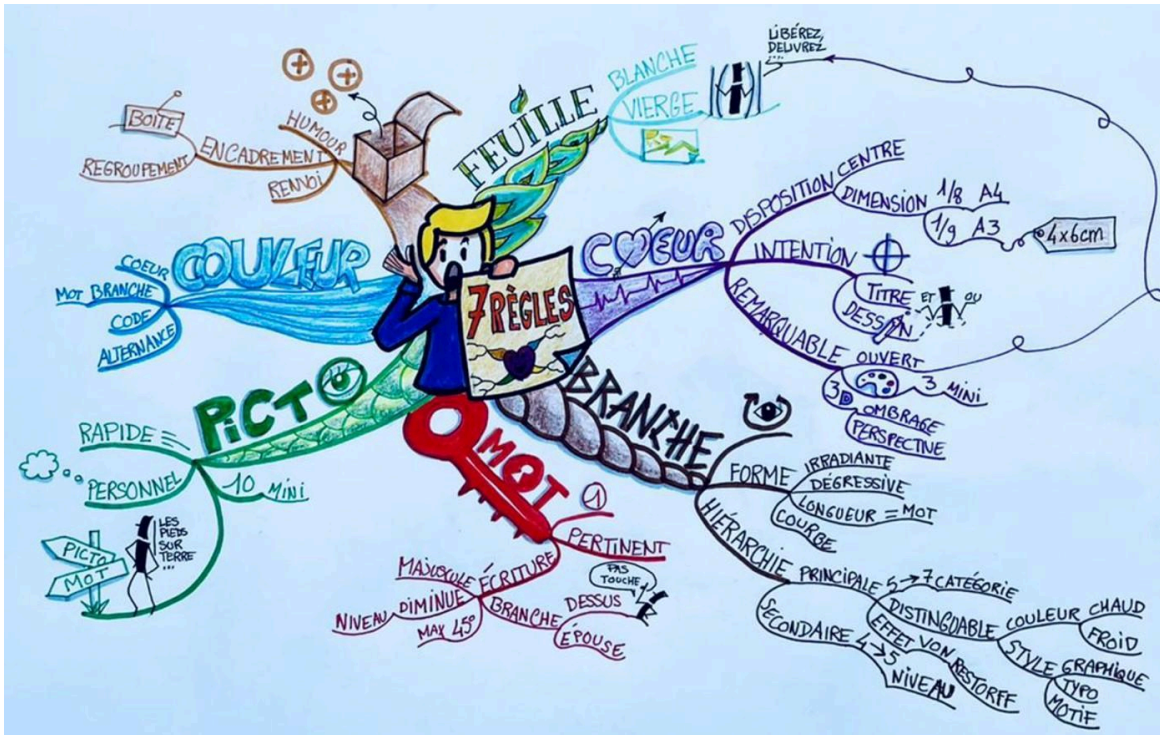 7 RÈGLES
FEUILLE
BLANCHE
VIERGE
LIBÉREZ,
DELIVREZ
....
CŒUR
DISPOSITION
CENTRE
DIMENSION
1/8 A4
1/9 A3
4x6cm
INTENTION
TITRE
ET
OU
DESSIN
REMARQUABLE
OUVERT
3 MINI
3D
OMBRAGE
PERSPECTIVE
BRANCHE
FORME
IRRADIANTE
DÉGRESSIVE
LONGUEUR = MOT
COURBE
HIÉRARCHIE
PRINCIPALE
5 → 7 CATÉGORIE
DISTINGUABLE
COULEUR
CHAUD
FROID
STYLE
GRAPHIQUE
TYPO
MOTIF
EFFET VON
RESTORFF
SECONDAIRE
4 → 5
NIVEAU
MOT
1
PERTINENT
ÉCRITURE
MAJUSCULE
DIMINUE
NIVEAU
MAX 45°
BRANCHE
DESSUS
PAS
TOUCHE
ÉPOUSE
PICTO
RAPIDE
PERSONNEL
10 MINI
LES
PIEDS
SUR
TERRE
...
PICTO
MOT
COULEUR
COEUR
MOT BRANCHE
CODE
ALTERNANCE
HUMOUR
ENCADREMENT
BOITE
REGROUPEMENT
RENVOI